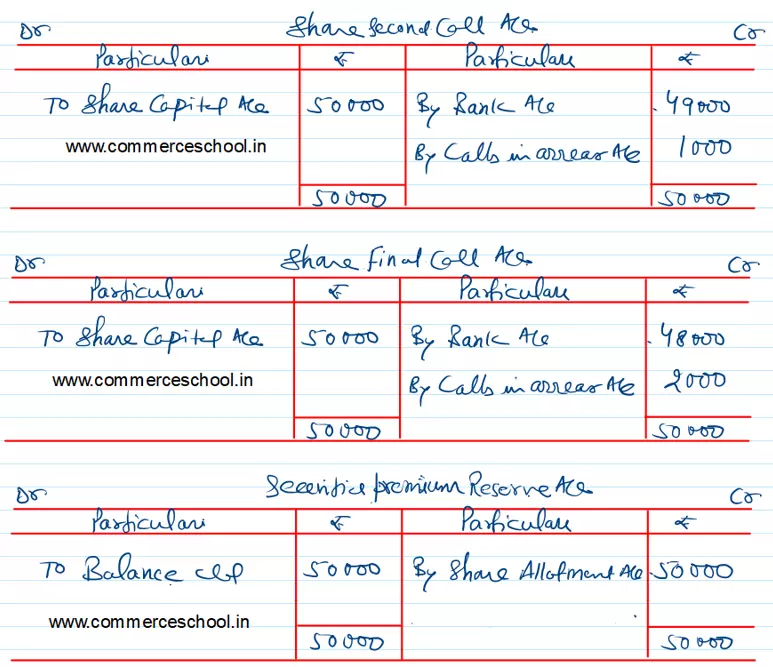 Dr Share Second Call A/c Cr
Particulars ₹ Particulars ₹
To Share Capital A/c 50000 By Bank A/c 49000
www.commerceschool.in By Calls in arrear A/c 1000
50000 50000
Dr Share Final Call A/c Cr
Particulars ₹ Particulars ₹
To Share Capital A/c 50000 By Bank A/c 48000
www.commerceschool.in By Calls in arrear A/c 2000
50000 50000
Dr Securities premium Reserve A/c Cr
Particulars ₹ Particulars ₹
To Balance c/f 50000 By Share Allotment A/c 50000
www.commerceschool.in
50000 50000